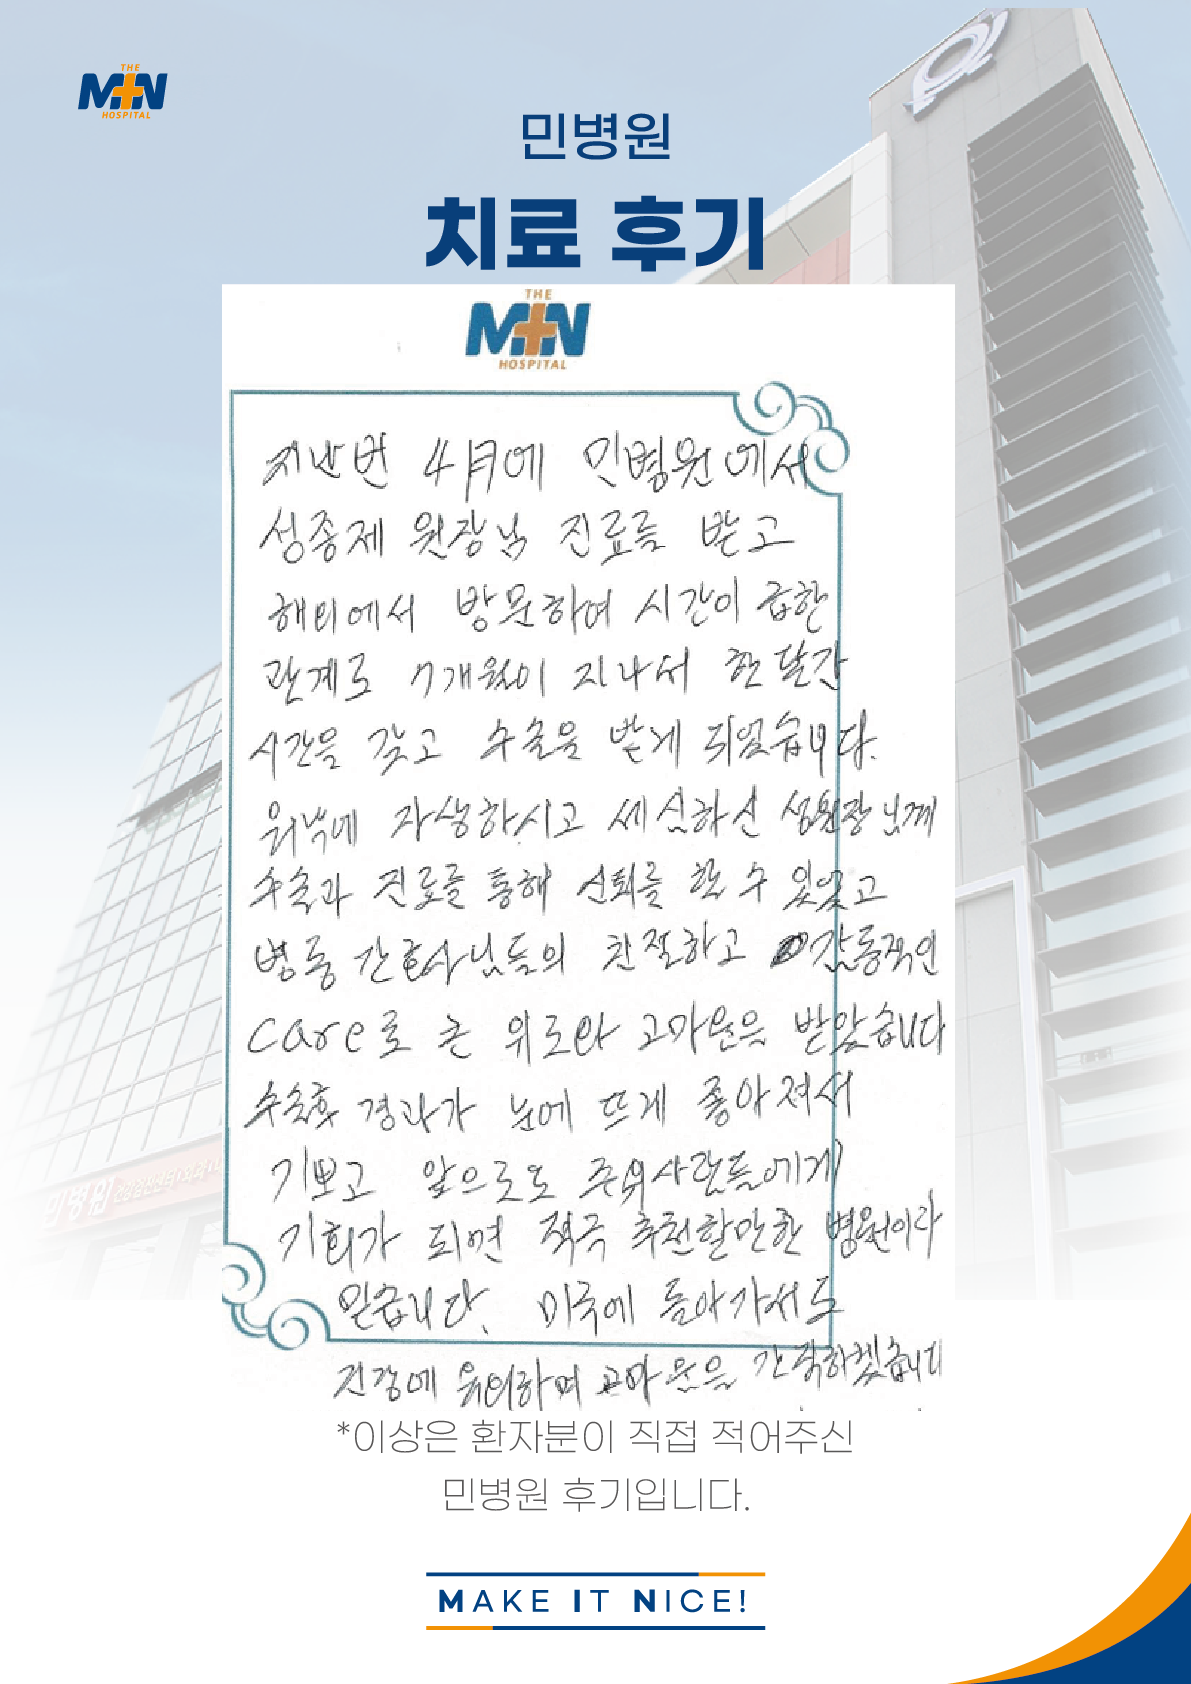 THE
MIN
HOSPITAL
민병원
치료 후기
THE
MIN
HOSPITAL
지난번 4月에 민병원에서
성종제 원장님 진료를 받고
해외에서 방문하여 시간이 급한
관계로 7개월이 지나서 한달간
시간을 갖고 수술을 받게 되었습니다.
워낙에 자상하시고 세심하신 성원장님께
수술과 진료를 통해 신뢰를 할 수 있었고
병동 간호사님들의 친절하고 감동적인
care로 큰 위로와 고마운을 받았습니다
수술후 경과가 눈에 뜨게 좋아져서
기쁘고 앞으로도 주위사람들에게
기회가 되면 적극 추천할만한 병원이라
믿습니다. 미국에 돌아가서도
건강에 유의하며 고마운을 간직하겠습니다
*이상은 환자분이 직접 적어주신
민병원 후기입니다.
민병원
MAKE IT NICE!